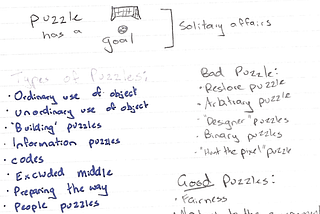 puzzle
has a
goal
Solitary affairs
Types of Puzzles:
• Ordinary use of object
• unordinary use of object
• "Building" puzzles
• Information puzzles
• codes
• Excluded middle
• Preparing the way
• People puzzles
Bad Puzzle:
• Restore puzzle
• Arbitrary puzzle
• "Designer" puzzles
• Binary puzzles
• "Hunt the pixel" puzzle
Good Puzzles:
• Fairness